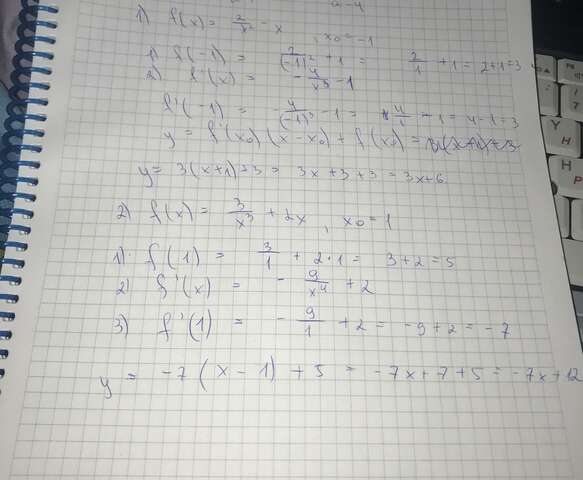 a-4
1) f(x) = 2/x² - x , x₀ = -1
1) f(-1) = 2/(-1)² + 1 = 2/1 + 1 = 2+1=3
2) f'(x) = - 4/x³ - 1
f'(-1) = - 4/(-1)³ - 1 = 4/1 - 1 = 4-1=3
y = f'(x₀)(x-x₀) + f(x₀) =
y = 3(x+1)+3 = 3x+3+3 = 3x+6
2) f(x) = 3/x³ + 2x , x₀ = 1
1) f(1) = 3/1 + 2·1 = 3+2 = 5
2) f'(x) = - 9/x⁴ + 2
3) f'(1) = - 9/1 + 2 = -9+2 = -7
y = -7(x-1) + 5 = -7x+7+5 = -7x+12
Y
H
H
P